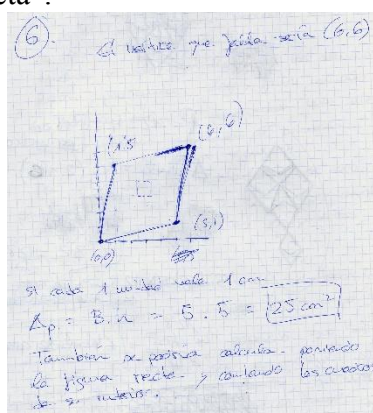 6
El vertice que falta sería (6,6)
(6,6)
(1,5
(5,1)
(0,0)
Si cada 1 unidad vale 1 cm
Ap = B.h = 5.5 = 25 cm²
También se podría calcular poniendo
la figura recta y contando los cuadros
de su interior.